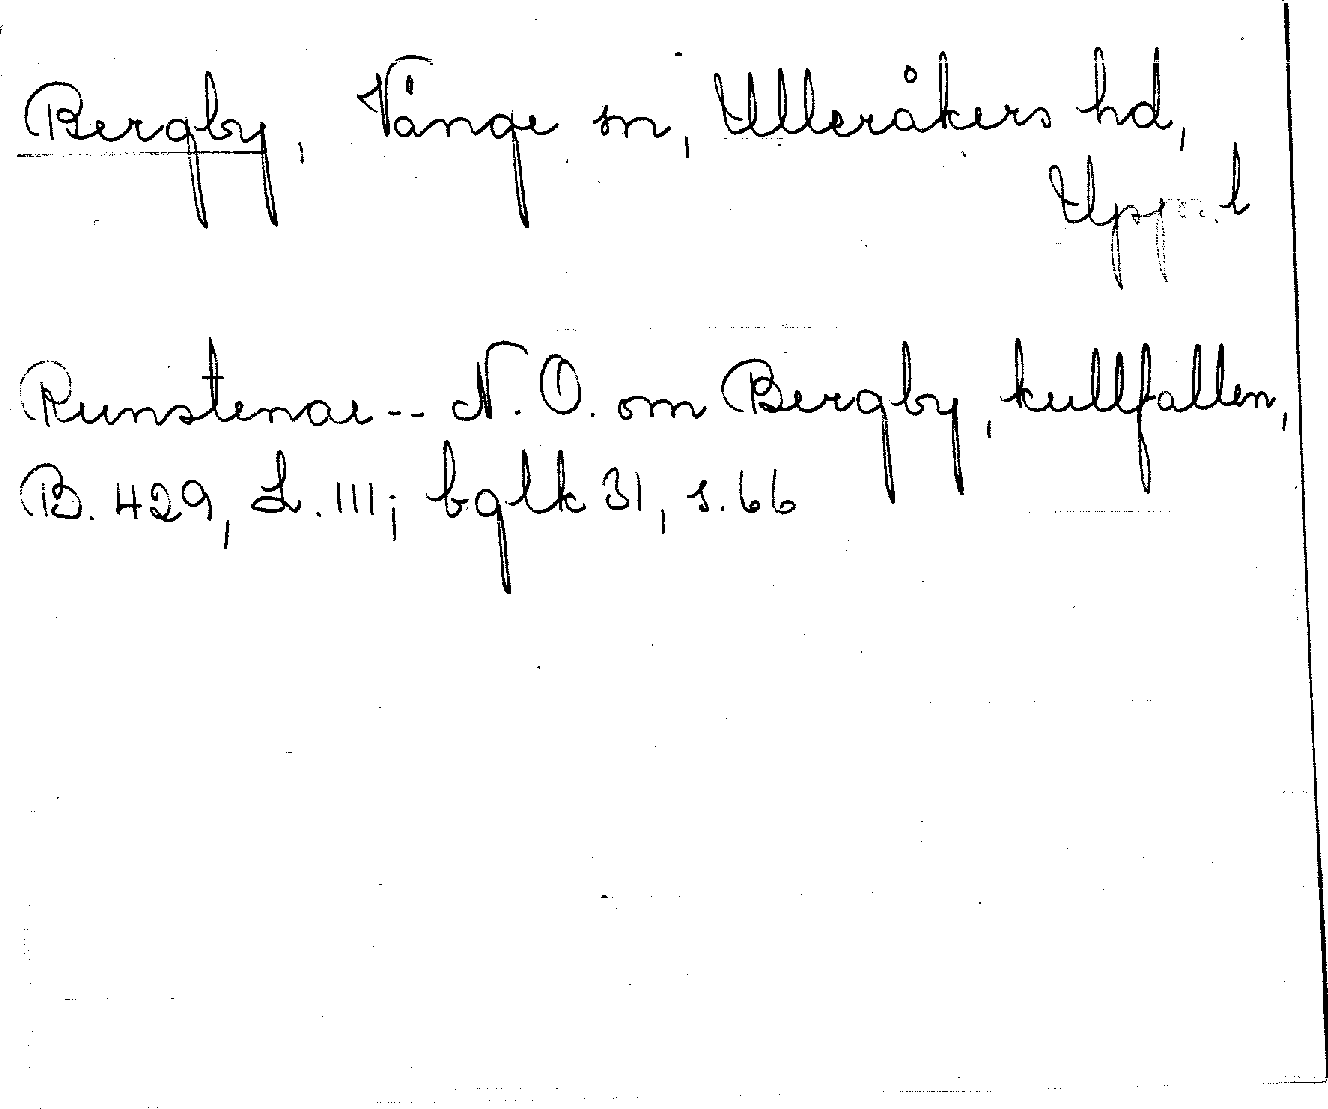 Bergby, Vänge sn, Ulleråkers hd,
Upps. l
Runstenar -- N. O. om Bergby, kullfallen,
B. 429, L. 111; bglk 31, s. 66